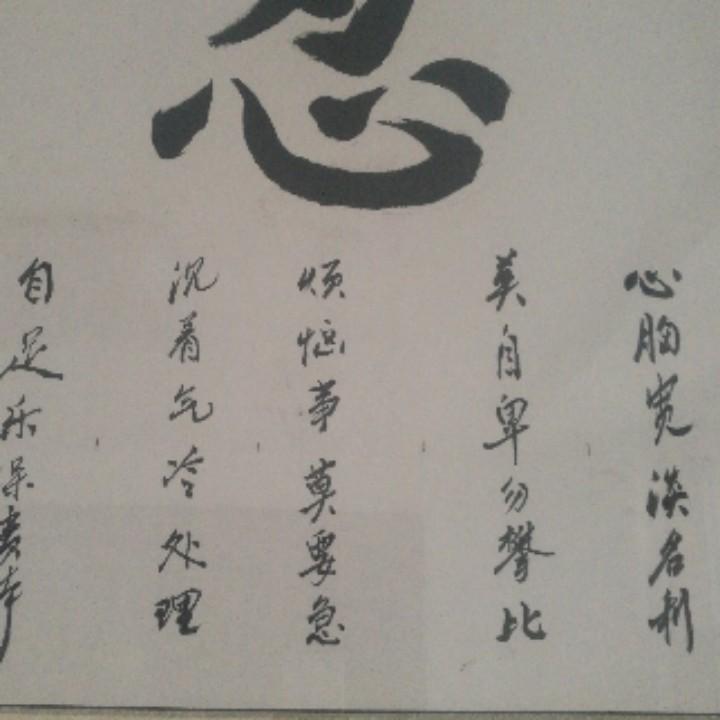 心胸宽淡名利
莫自卑勿攀比
烦恼事莫要急
沉着气冷处理
自足乐